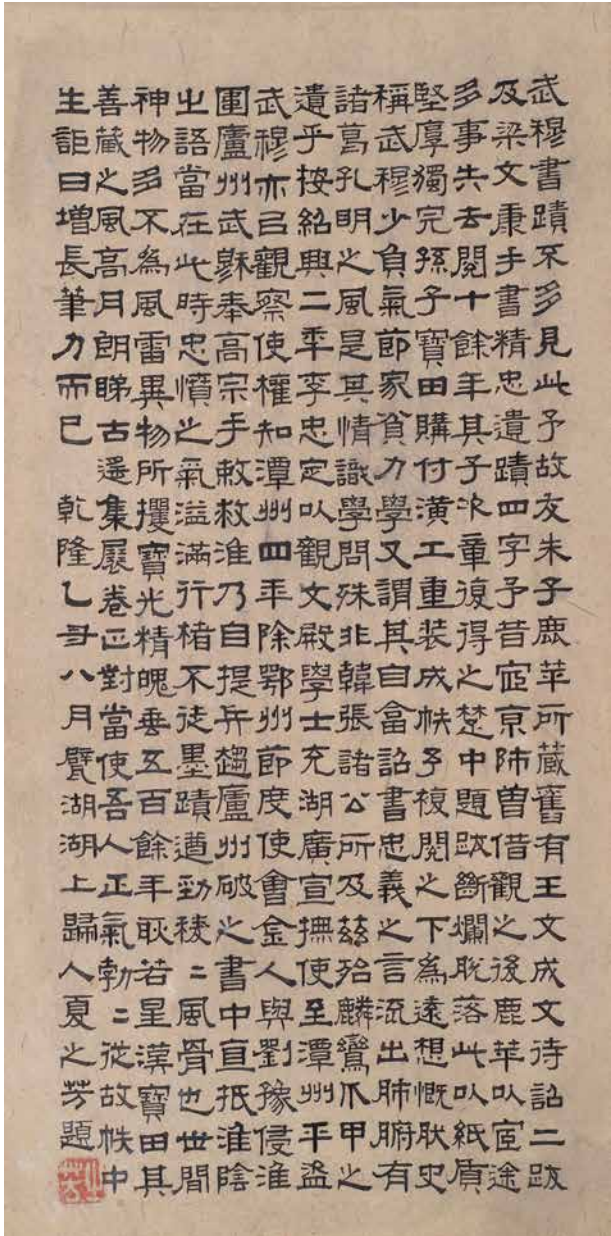 武穆書蹟不多見此予故友朱子鹿苹所藏舊有王文成文待詔二跋
及梁文康手書精忠遺蹟四字予昔宦京師曾借觀之後鹿苹以宦途
多事失去閱十餘年其子次章復得之楚中題跋斷爛脫落此以紙質
堅厚獨完孫子寶田購付潢工重装成帙予複閱之下為遠想慨肰史
稱武穆少負氣節家貧力學又謂其自畣詔書忠義之言流出肺腑有
諸葛孔明之風是其情識學問殊非韓張諸公所及兹殆麟鸞爪甲之
遺乎按紹興二年李忠定以觀文殿學士充湖廣宣撫使至潭州平盜
武穆亦以觀察使權知潭州四年除鄂州節度使會金人與劉豫侵淮
圍廬州武穆奉高宗手敕救淮乃自提兵趨廬州破之書中直抵淮陰
之語當在此時忠憤之氣溢滿行楮不徒墨蹟遒勁稜二風骨也世間
神物多不為風雷異物所攫寶光精魄垂五百餘年耿若星漢寶田其
善藏之風高月朗睇古遥集展卷正對當使吾人正氣勃二從故帙中
生詎曰增長筆力而已 乾隆乙丑八月甓湖湖上歸人夏之芳題